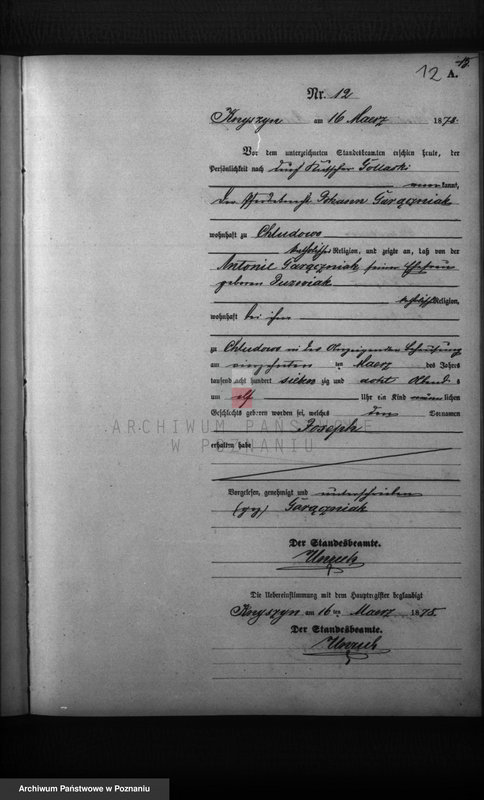 12 13.
A.
Nr. 12
Knyszyn am 16 Maerz 1878.
Vor dem unterzeichneten Standesbeamten erschien heute, der
Persönlichkeit nach durch Kutscher
kannt,
der Pferdeknecht Johann Garączniak
wohnhaft zu Chludowo
katholischer Religion, und zeigte an, daß von der
Antonie Garączniak seiner Ehefrau
geborene
katholischer Religion,
wohnhaft bei ihm
zu Chludowo in des Anzeigenden Behausung
am vierzehnten ten Maerz des Jahres
tausend acht hundert sieben zig und acht Abends
um elf Uhr ein Kind männlichen
Geschlechts geboren worden sei, welches den Vornamen
Joseph
erhalten habe
ARCHIWUM PAŃSTWOWE
W POZNANIU
Vorgelesen, genehmigt und unterschrieben
(gez) Garączniak
Der Standesbeamte.
Die Uebereinstimmung mit dem Hauptregister beglaubigt
Knyszyn am 16 ten Maerz 1878.
Der Standesbeamte.
Archiwum Państwowe w Poznaniu